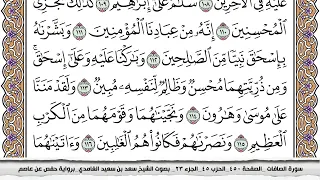 عَلَيْهِ فِي ٱلْأَخِرِينَ ١٠٨ سَلَـٰمٌ عَلَىٰٓ إِبْرَٰهِيمَ ١٠٩ كَذَٰلِكَ نَجْزِي
ٱلْمُحْسِنِينَ ١١٠ إِنَّهُۥ مِنْ عِبَادِنَا ٱلْمُؤْمِنِينَ ١١١ وَبَشَّرْنَـٰهُ
بِإِسْحَـٰقَ نَبِيًّا مِّنَ ٱلصَّـٰلِحِينَ ١١٢ وَبَـٰرَكْنَا عَلَيْهِ وَعَلَىٰٓ إِسْحَـٰقَ
وَمِن ذُرِّيَّتِهِمَا مُحْسِنٌ وَظَالِمٌ لِّنَفْسِهِۦ مُبِينٌ ١١٣ وَلَقَدْ مَنَنَّا
عَلَىٰ مُوسَىٰ وَهَـٰرُونَ ١١٤ وَنَجَّيْنَـٰهُمَا وَقَوْمَهُمَا مِنَ ٱلْكَرْبِ
ٱلْعَظِيمِ ١١٥ وَنَصَرْنَـٰهُمْ فَكَانُوا۟ هُمُ ٱلْغَـٰلِبِينَ ١١٦ وَءَاتَيْنَـٰهُمَا
سورة الصافات - الصفحة ٤٥٠ - الحزب ٤٥ - الجزء ٢٣ - بصوت الشيخ سعد بن سعيد الغامدي - برواية حفص عن عاصم